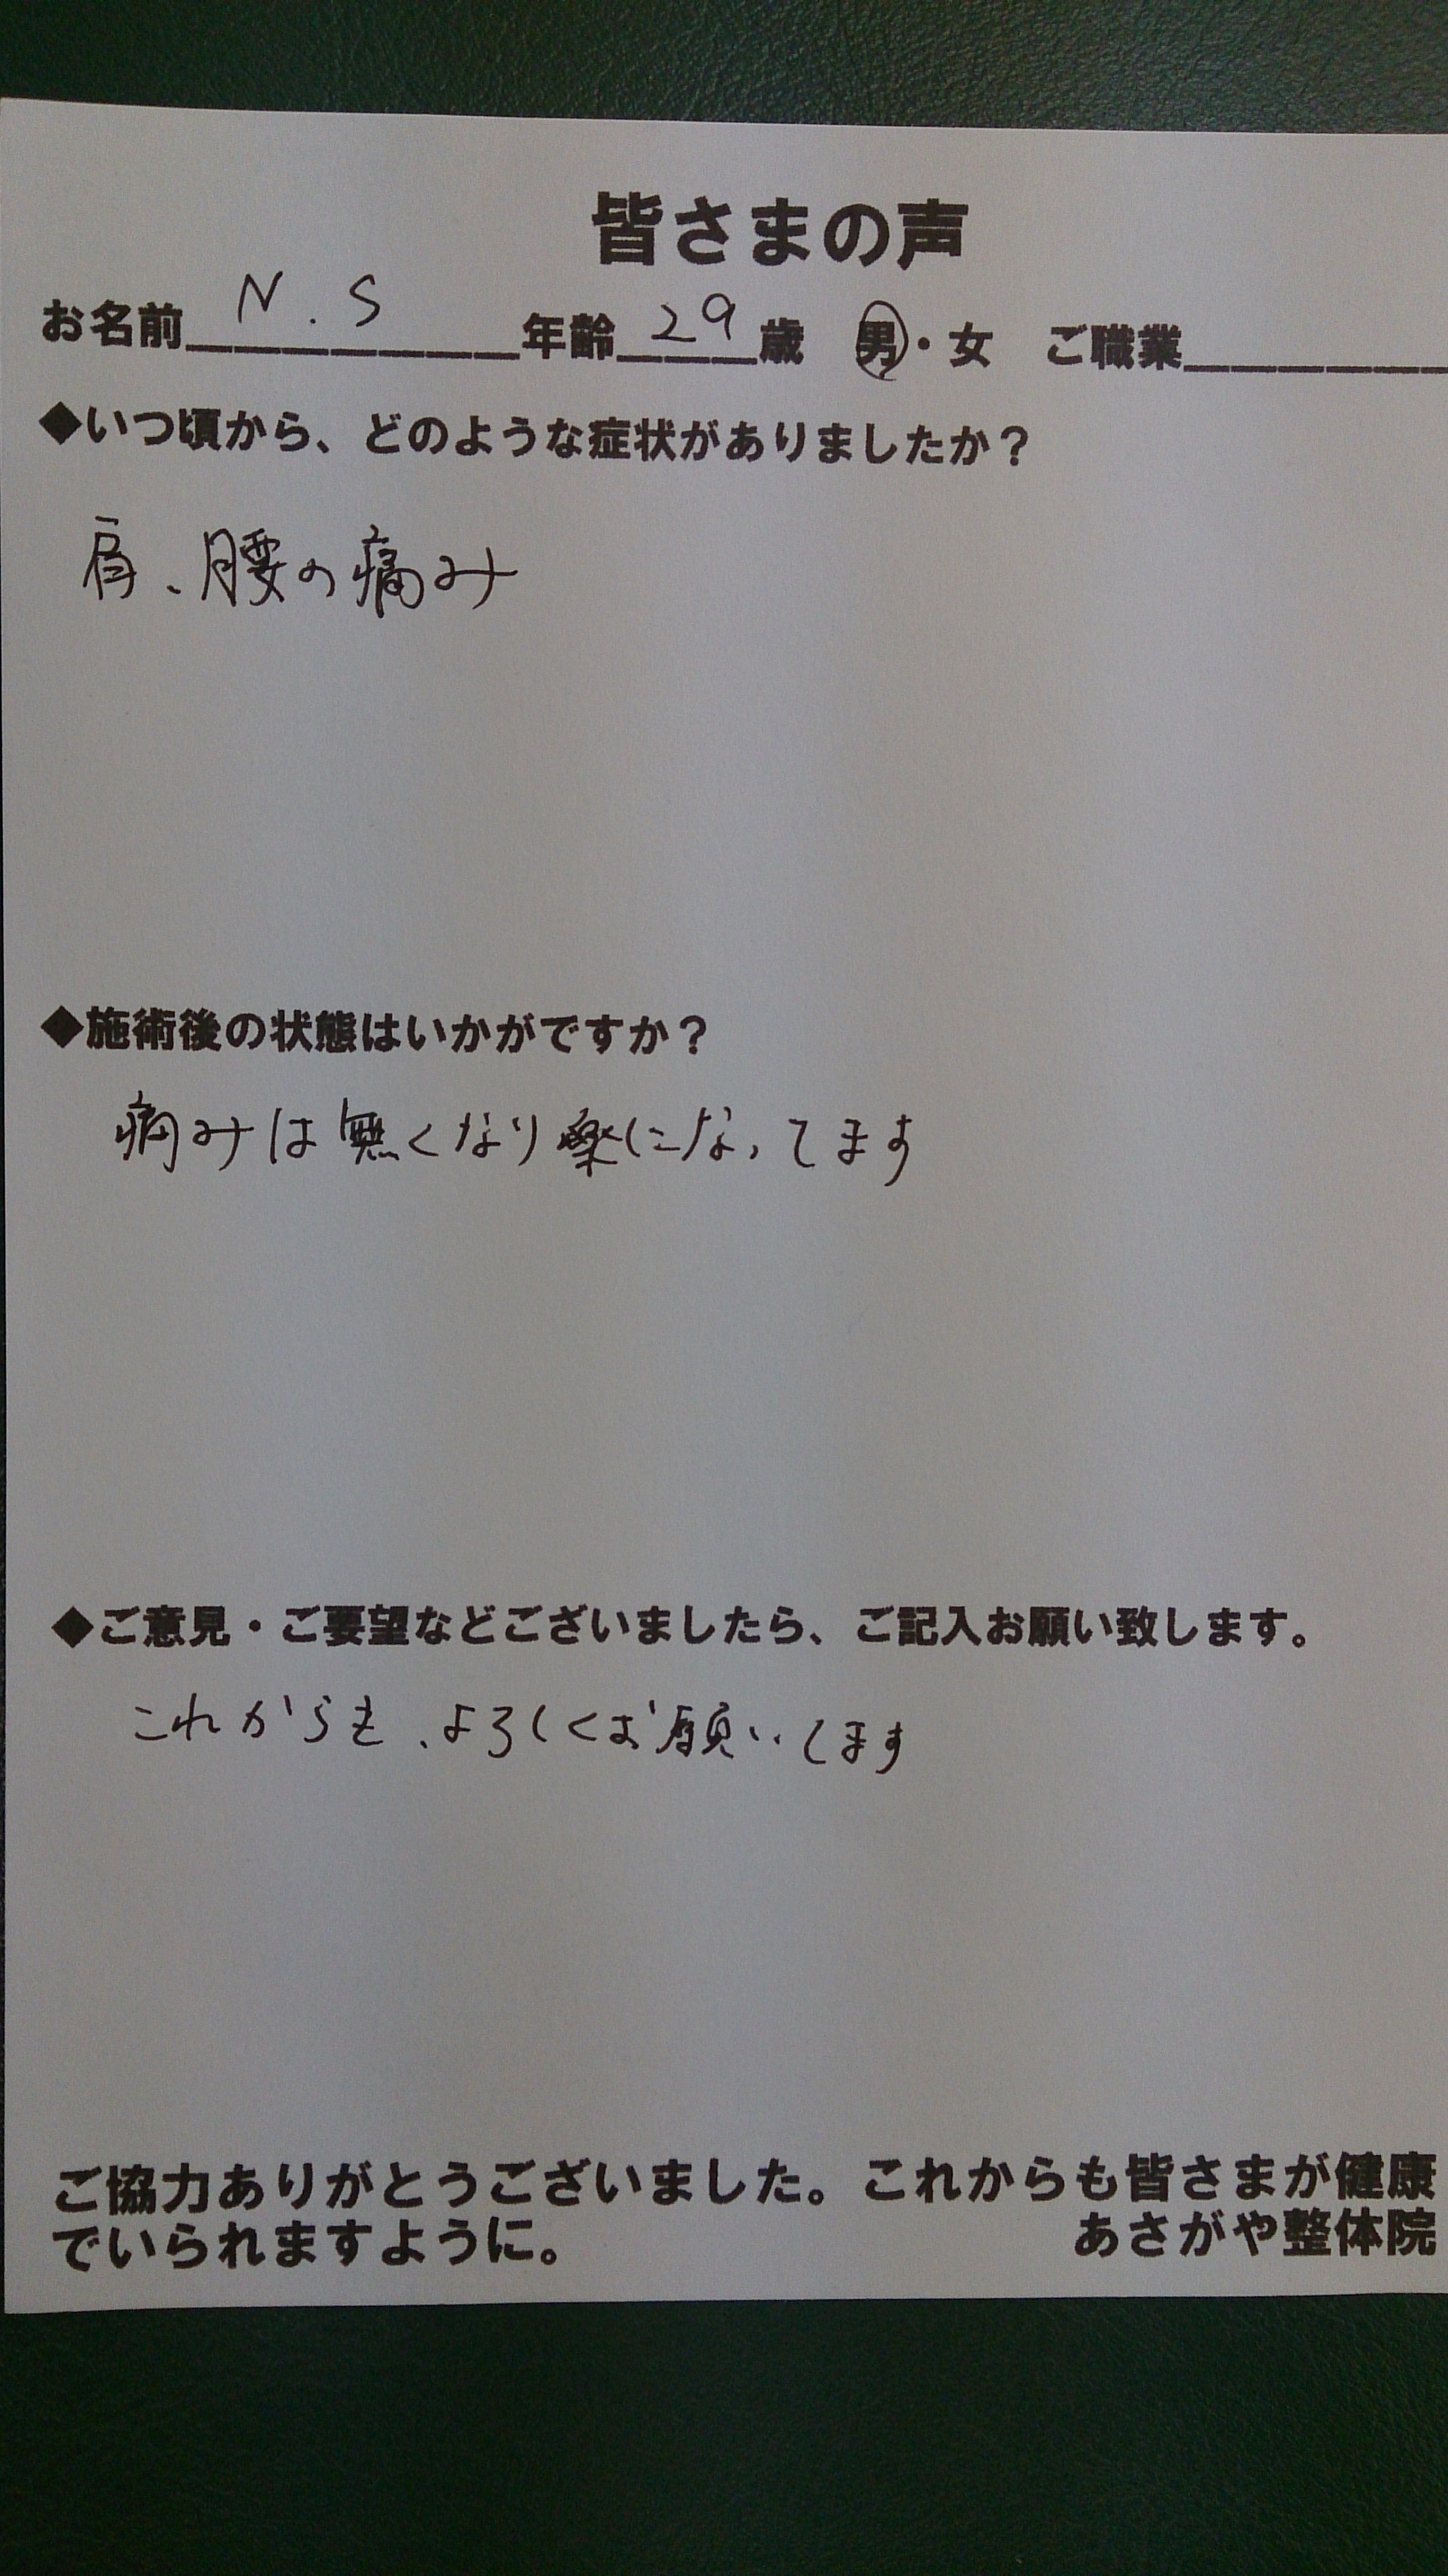 皆さまの声
お名前 N.S 年齢 29 歳 男・女 ご職業
◆いつ頃から、どのような症状がありましたか？
肩、腰の痛み
◆施術後の状態はいかがですか？
痛みは無くなり楽になってます
◆ご意見・ご要望などございましたら、ご記入お願い致します。
これからも、よろしくお願いします
ご協力ありがとうございました。これからも皆さまが健康
でいられますように。 あさがや整体院